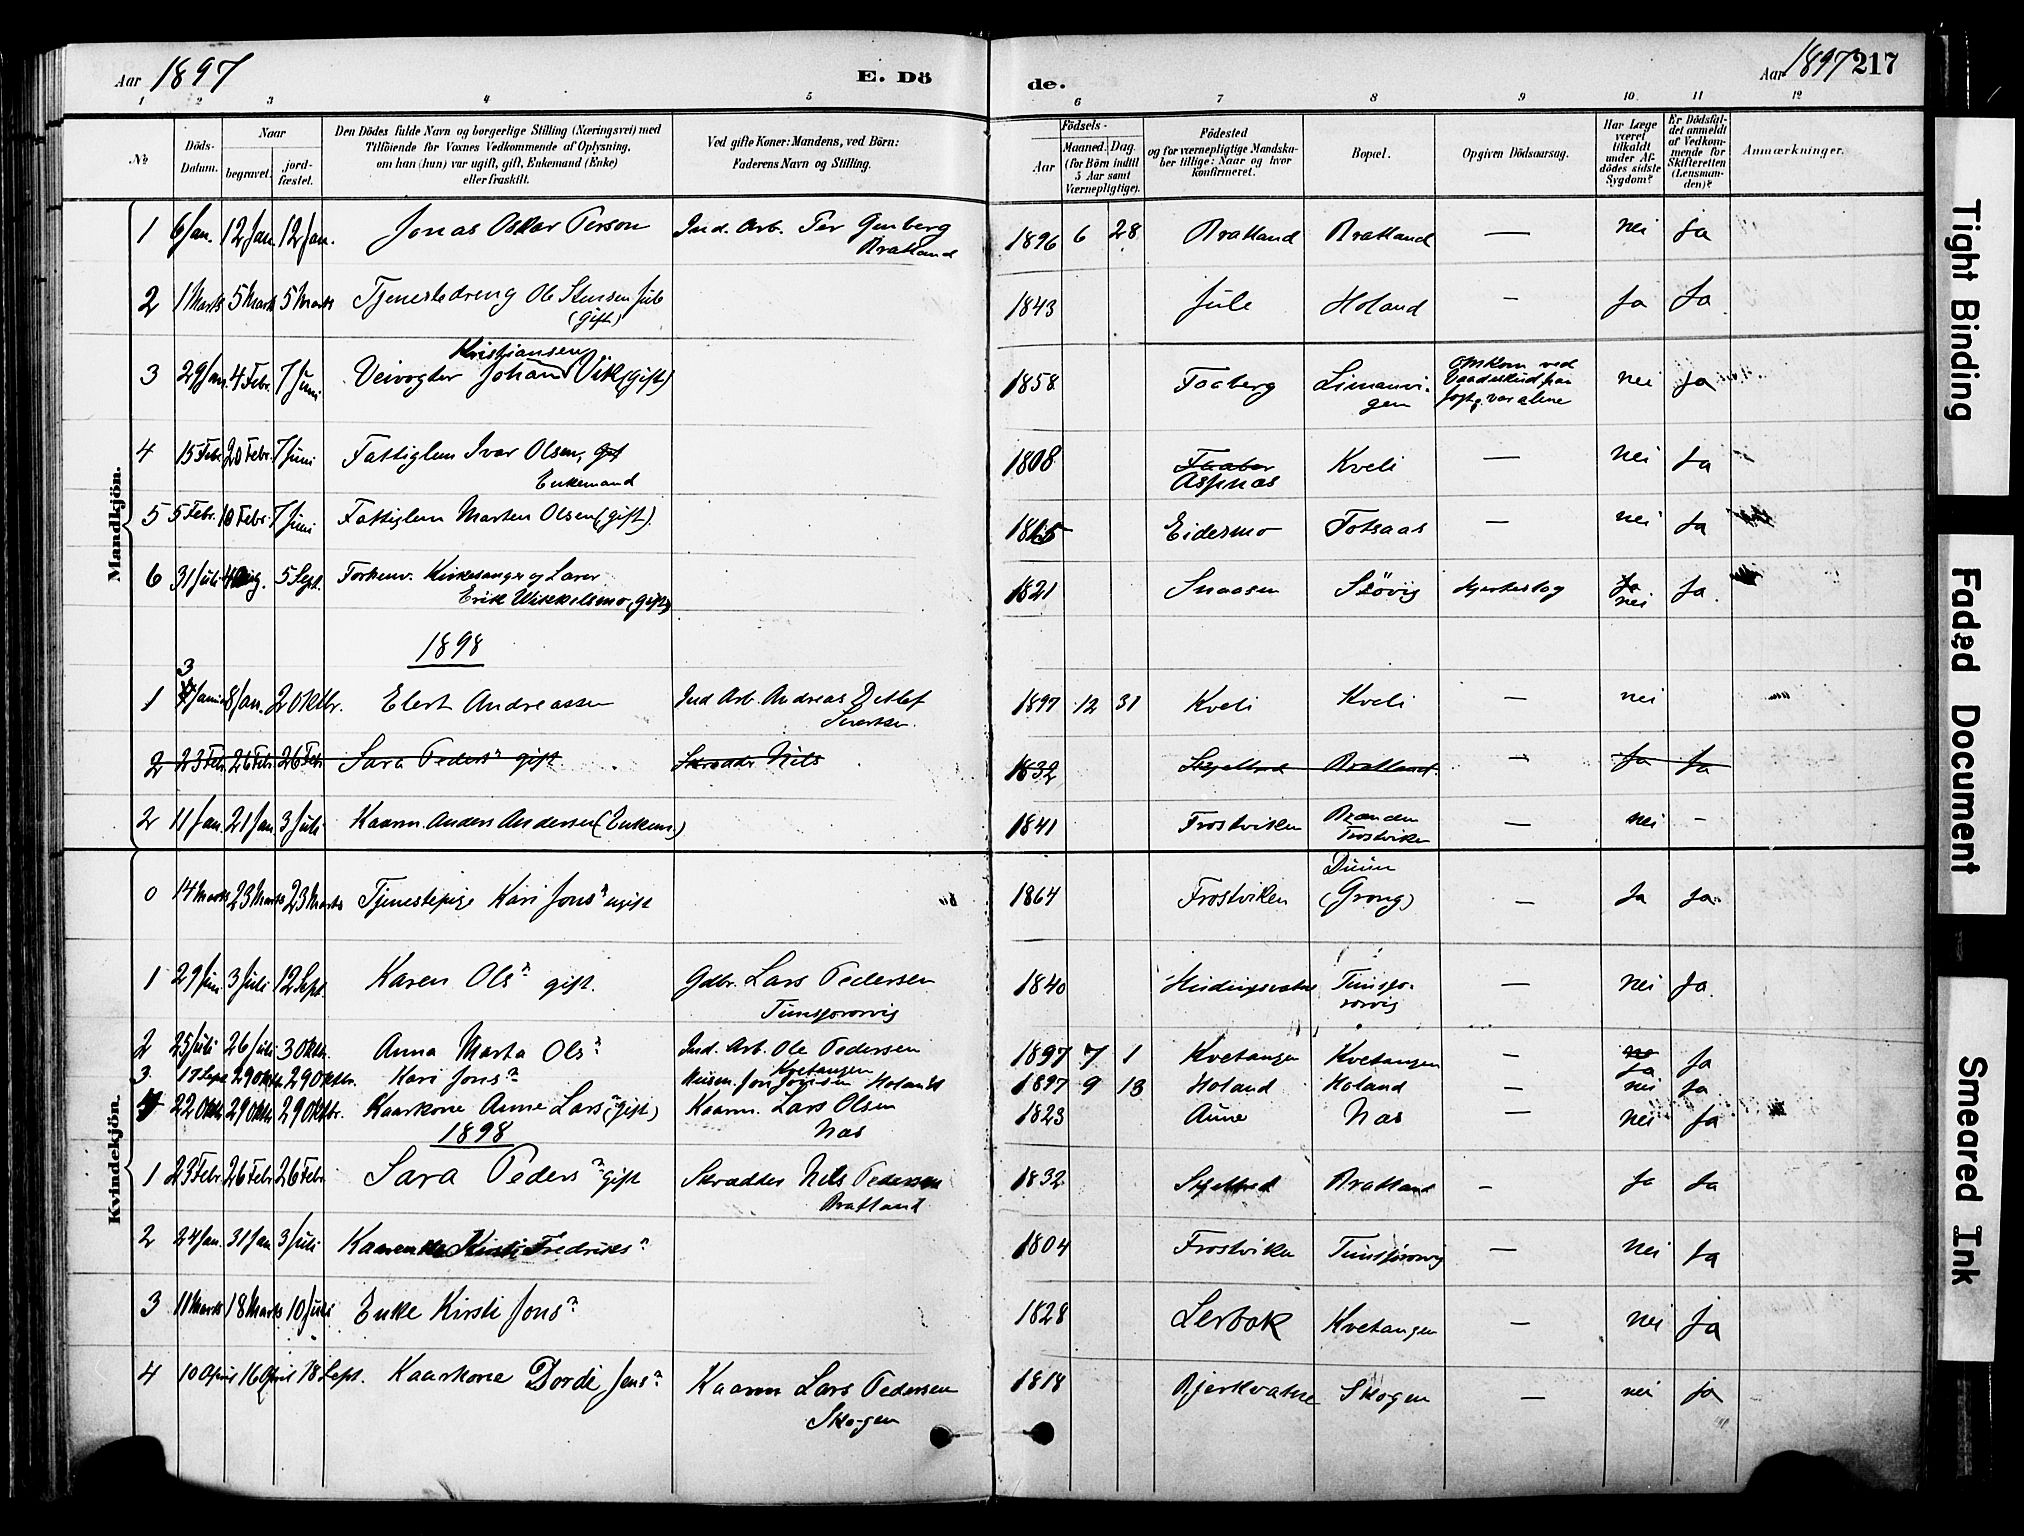 Aar 1897
E. Dö
de.
Aar 1897 217
1 2 3 4 5 6 7 8 9 10 11 12
No
Döds-Datum.
Naar
begravet.
jord-fæstet.
Den Dödes fulde Navn og borgerlige Stilling (Næringsvei) med
Tilföiende for Voxnes Vedkommende af Oplysning,
om han (hun) var ugift, gift, Enkemand (Enke)
eller fraskilt.
Ved gifte Koner: Mandens, ved Börn:
Faderens Navn og Stilling.
Födsels-
Aar
Maaned. Dag.
(for Börn indtil
5 Aar samt
Værnepligtige).
Födested
og for værnepligtige Mandska-
ber tillige: Naar og hvor
konfirmeret.
Bopæl.
Opgiven Dödsaarsag.
Har Læge
været
tilkaldt
under Af-
dödes sidste
Sygdom?
Er Dödsfal-
det anmeldt
af Vedkom-
mende for
Skifteretten
(Lensman-
den)?
Anmærkninger.
Mandkjön.
1 6 Jan. 12 Jan. 12 Jan. Jonas Oskar Person Ind. Arb. Per Genberg Bratland 1896 6 28 Bratland Bratland — nei Ja
2 1 Marts 5 Marts 5 Marts Tjenestedreng Ole Stensen Jule (gift) 1843 Jule Holand — Ja Ja
3 29 Jan. 4 Febr. 7 Juni Veivogter Johan Kristiansen Vik (gift) 1858 Faaberg Limanvigen Omkom ved Vaadeskud paa Jagt, var alene nei Ja
4 15 Febr. 20 Febr. 7 Juni Fattiglem Ivar Olsen, gift Enkemand 1808 Faaber Aspnas Kveli — nei Ja
5 5 Febr. 10 Febr. 7 Juni Fattiglem Marten Olsen (gift). 1815 Eidesmo Totsaas — nei Ja
6 31 Juli 4 Aug. 5 Sept. Forhenv. Kirkesanger og Larer Erik Wikkelsmo (gift) 1821 Snaasen Slövig Hjerteslag Ja nei Ja.
1898
1 3 Januar 8 Jan. 2 Oktbr. Elert Andreassen Ind Arb. Andreas Detlef 1897 12 31 Kveli Kveli — nei
2 23 Febr. 26 Febr. 26 Febr. Sara Pedersn gift Skradder Nils 1832 Skjelbred Bratland — Ja Ja
2 11 Jan. 21 Jan. 3 Juli Kaarm. Anders Andersen (Enkem.) 1841 Frostviken Branden Frostviken — nei —
Kvindekjön.
0 14 Marts 23 Marts 23 Marts Tjenestepige Kari Jonsn ugift 1864 Frostviken Duun (Grong) — Ja Ja.
1 29 Juni 3 Juli 12 Sept. Karen Olsn gift. Gdbr. Lars Pedersen Tunsjorörvig 1840 Hudingsvatne Tunsjorörvig — nei Ja.
2 25 Juli 26 Juli 3 Oktb. Anna Marta Olsn Ind. Arb. Ole Pedersen Kvetangen 1897 7 1 Kvetangen Kvetangen — nei Ja Ja
3 17 Sept 29 Oktb 29 Oktbr. Kari Jonsn Jon Jonsen Holand 1897 9 13 Holand Holand — nei Ja
4 22 Oktb 29 Oktb 29 Oktbr. Kaarkone Anne Larsn (gift) Kaarm. Lars Olsen Nas 1823 Aune Nas — nei Ja
1898
1 23 Febr. 26 Febr 26 Febr Sara Pedersn gift Skradder Nils Pedersen Bratland 1832 Skjelbred Bratland — Ja Ja
2 24 Jan. 31 Jan 3 Juli Kaarenke Kirsti Fredriksn 1804 Frostviken Tunsjorörvig — nei Ja
3 11 Marts 18 Marts 10 Juli Enke Kirsti Jonsn 1828 Lerbak Kvetangen — nei Ja
4 10 April 16 April 18 Sept. Kaarkone Dordi Jensn Kaarm Lars Pedersen Skogen 1818 Bjerkvatne Skogen — nei ja
Tight Binding
Faded Document
Smeared Ink